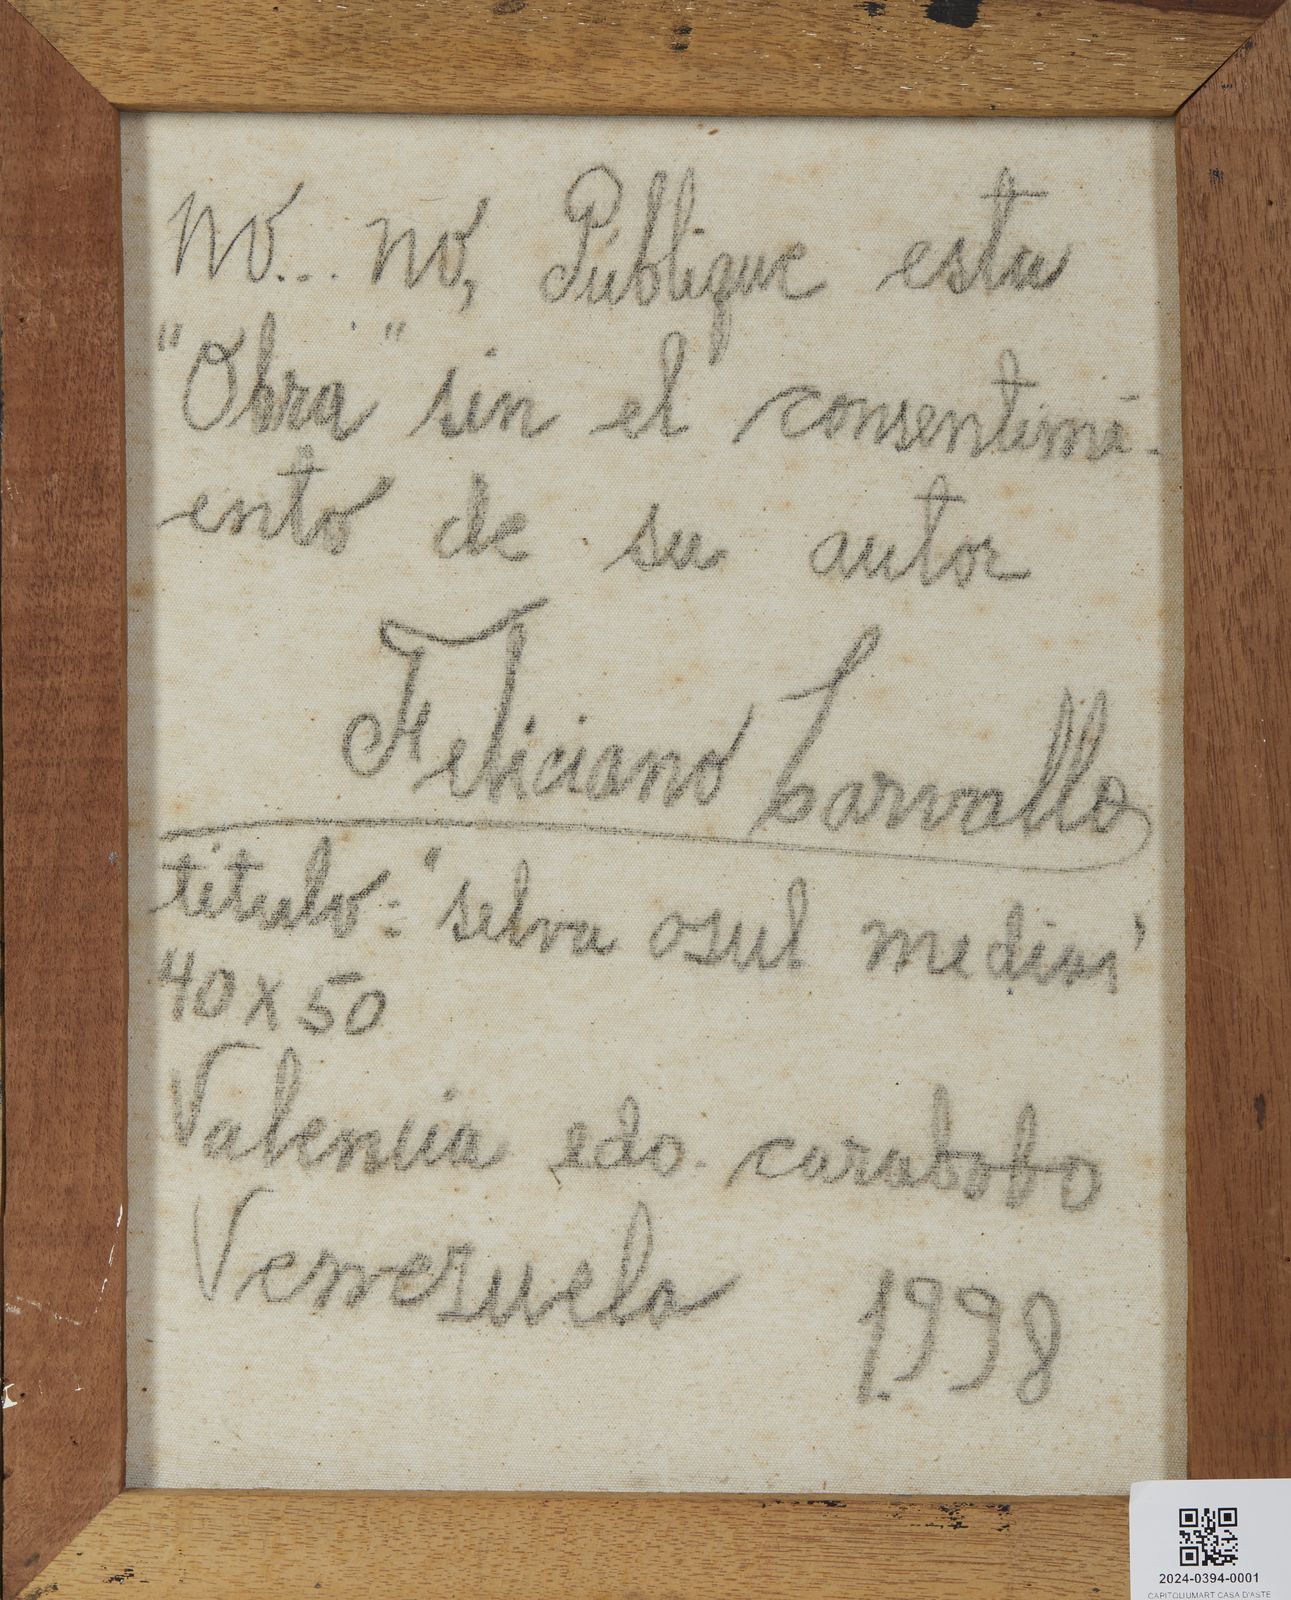 no... no, Públique esta
"Obra" sin el consentimi-
ento de su autor
Feliciano Carvallo
titulo: "selva azul
40 x 50
Valencia edo. carabobo
Venezuela 1.998
2024-0394-0001
CAPITOLIUMART CASA D'ASTE